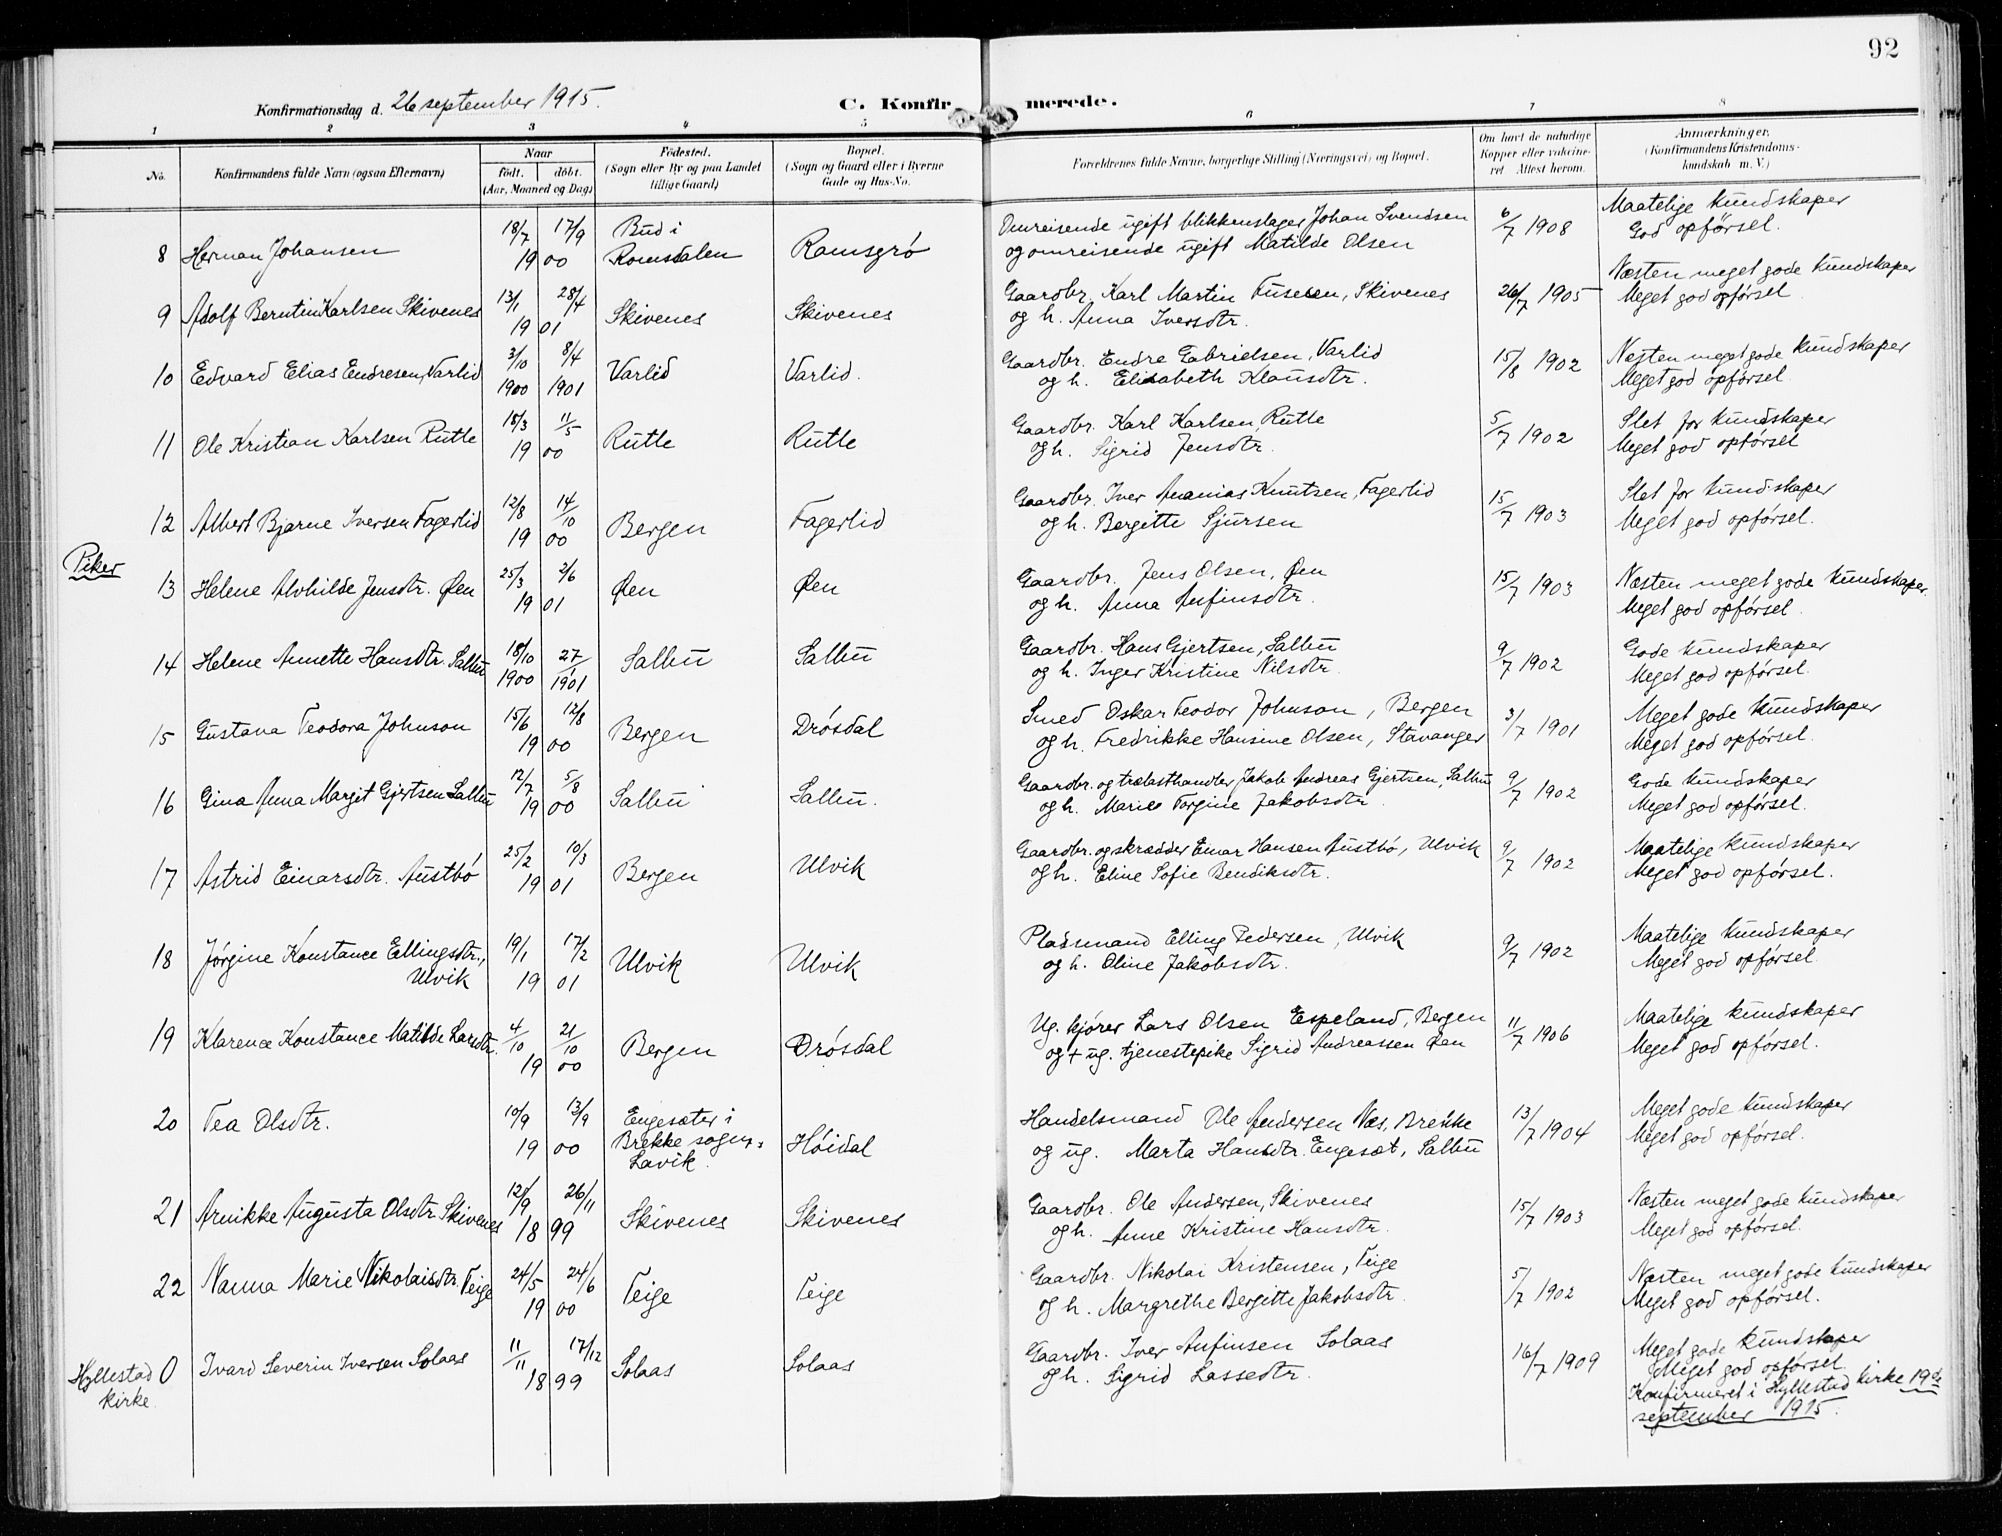 92
Konfirmationsdag d. 26 september 1915.
C. Konfir merede.
1 2 3 4 5 6 7 8
No. Konfirmandens fulde Navn (ogsaa Efternavn)
Naar
født. døbt.
(Aar, Maaned og Dag)
Fødested.
(Sogn eller By og paa Landet
tillige Gaard)
Bopæl.
(Sogn og Gaard eller i Byerne
Gade og Hus-No.
Forældrenes fulde Navne, borgerlige Stilling (Næringsvei) og Bopæl.
Om havt de naturlige
Kopper eller vakcine-
ret Attest herom.
Anmærkninger.
(Konfirmandens Kristendoms-
kundskab m. V.)
8 Herman Johansen 18/7 17/9 1900 Bud i
Romsdalen Ramsgrø
Omreisende ugift blikkenslager Johan Svendsen
og omreisende ugift Matilde Olsen
6/7 1908
Maatelige kundskaper
God opførsel.
9 Adolf Berntin Karlsen Skivenes 13/1 28/4 1901 Skivenes Skivenes
Gaardbr. Karl Martin Skivenes
og h. Anna Iversdtr.
26/7 1905
Næsten meget gode kundskaper
Meget god opførsel
10 Edvard Elias Endresen Varlid 3/10 1900 8/4 1901 Varlid Varlid.
Gaardbr. Endre Gabrielsen, Varlid
og h. Elisabeth Klausdtr.
15/8 1902
Næsten meget gode kundskaper
Meget god opførsel
11 Ole Kristian Karlsen Rutle 18/3 11/5 1900 Rutle Rutle
Gaardbr. Karl Karlsen, Rutle
og h. Sigrid Jensdtr.
5/7 1902
Slet for kundskaper
Meget god opførsel
12 Albert Bjarne Iversen Fagerlid 12/8 14/10 1900 Bergen Fagerlid
Gaardbr. Iver Ananias Knutsen, Fagerlid
og h. Bergitte Sjursen
15/7 1903
Slet for kundskaper
Meget god opførsel.
Piker
13 Helene Alvhilde Jensdtr. Øen 25/3 2/6 1901 Øen Øen
Gaardbr. Jens Olsen, Øen
og h. Anna Anfinsdtr.
15/7 1903
Næsten meget gode kundskaper.
Meget god opførsel.
14 Helene Annette Hansdtr. Salbu 18/10 1900 27/1 1901 Salbu Salbu
Gaardbr. Hans Gjertsen, Salbu
og h. Inger Kristine Nilsdtr.
9/7 1902
Gode kundskaper
Meget god opførsel.
15 Gustava Teodora Johnson 15/6 12/8 1900 Bergen Drøsdal
Smed Oskar Teodor Johnson, Bergen
og h. Fredrikke Hansine Olsen, Stavanger
3/7 1901
Meget gode kundskaper
Meget god opførsel.
16 Gina Anna Margit Gjertsen Salbu 12/7 5/8 1900 Salbu Salbu.
Gaardbr. og trælasthandler Jakob Andreas Gjertsen, Salbu
og h. Marie Torgine Jakobsdtr.
9/7 1902
Gode kundskaper
Meget god opførsel.
17 Astrid Einarsdtr. Austbø 25/2 10/3 1901 Bergen Ulvik
Gaardbr. og skrædder Einar Hansen Austbø, Ulvik
og h. Eline Sofie Bendiksdtr.
9/7 1902
Maatelige kundskaper
Meget god opførsel.
18 Jørgine Konstance Ellingsdtr.,
Ulvik 19/1 17/2 1901 Ulvik Ulvik
Pladsmand Elling Pedersen, Ulvik
og h. Oline Jakobsdtr.
9/7 1902
Maatelige kundskaper
Meget god opførsel
19 Klarence Konstance Matilde Larsdtr. 4/10 21/10 1900 Bergen Drøsdal
Ug. kjører Lars Olsen Espeland, Bergen
og + ug. tjenestepike Sigrid Andreassen Øen
11/7 1906
Maatelige kundskaper
Meget god opførsel.
20 Tea Olsdtr. 10/9 13/9 1900 Engesæter i
Brekke sogn,
Lavik. Høidal
Handelsmand Ole Andersen Næs, Brekke
og ug. Marta Hansdtr. Engesæt, Salbu
13/7 1904
Meget gode kundskaper
Meget god opførsel.
21 Arnikke Augusta Olsdtr. Skivenes 12/9 26/11 1899 Skivenes Skivenes
Gaardbr. Ole Andersen, Skivenes
og h. Anne Kristine Hansdtr.
15/7 1903
Næsten meget gode kundskaper
Meget god opførsel.
22 Nanna Marie Nikolaisdtr. Teige 24/5 24/6 1900 Teige Teige
Gaardbr. Nikolai Kristensen, Teige
og h. Margrethe Bergitte Jakobsdtr.
5/7 1902
Næsten meget gode kundskaper
Meget god opførsel.
Hyllestad
kirke.
0 Ivard Severin Iversen Solaas 11/11 17/12 1899 Solaas Solaas
Gaardbr. Iver Anfinsen Solaas
og h. Sigrid Lassedtr.
16/7 1909
Meget gode kundskaper
Meget god opførsel
Konfirmeret i Hyllestad kirke 19de
september 1915.